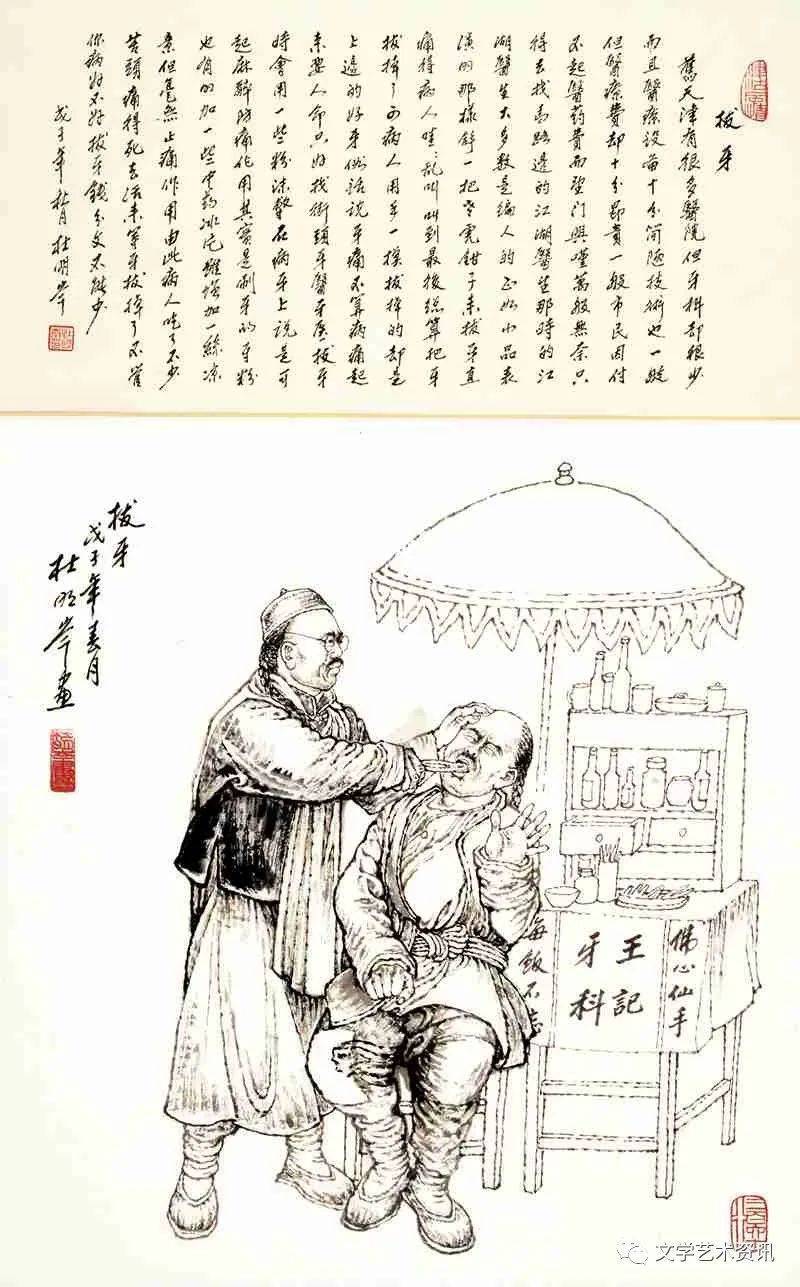 拔牙
舊天津有很多醫院但牙科却很少
而且醫療設备十分简陋技術也一般
但醫療費却十分昂貴一般市民因付
不起醫药費而望门興嘆萬般無奈只
得去找馬路邊的江湖醫生那時的江
湖醫生大多数是骗人的正如小品表
演的那樣拿一把老虎鉗子来拔牙直
痛得病人哇哇乱叫叫到最後總算把牙
拔掉了可病人用手一摸拔掉的却是
上邊的好牙俗話说牙痛不算病痛起
来要人命只好找街頭牙醫牙医拔牙
時會用一些粉沫擦在病牙上说是可
起麻醉防痛作用其實是刷牙的牙粉
也有的加一些中药冰片雖增加一絲凉
意但毫無止痛作用由此病人吃了不少
苦頭痛得死去活来等牙拔掉了不管
你病好不好拔牙錢分文不能少
戊子年秋月杜明岑
拔牙
戊子年春月
杜明岑画
佛心仙手
王記
牙科
每飯不忘
文学艺术资讯